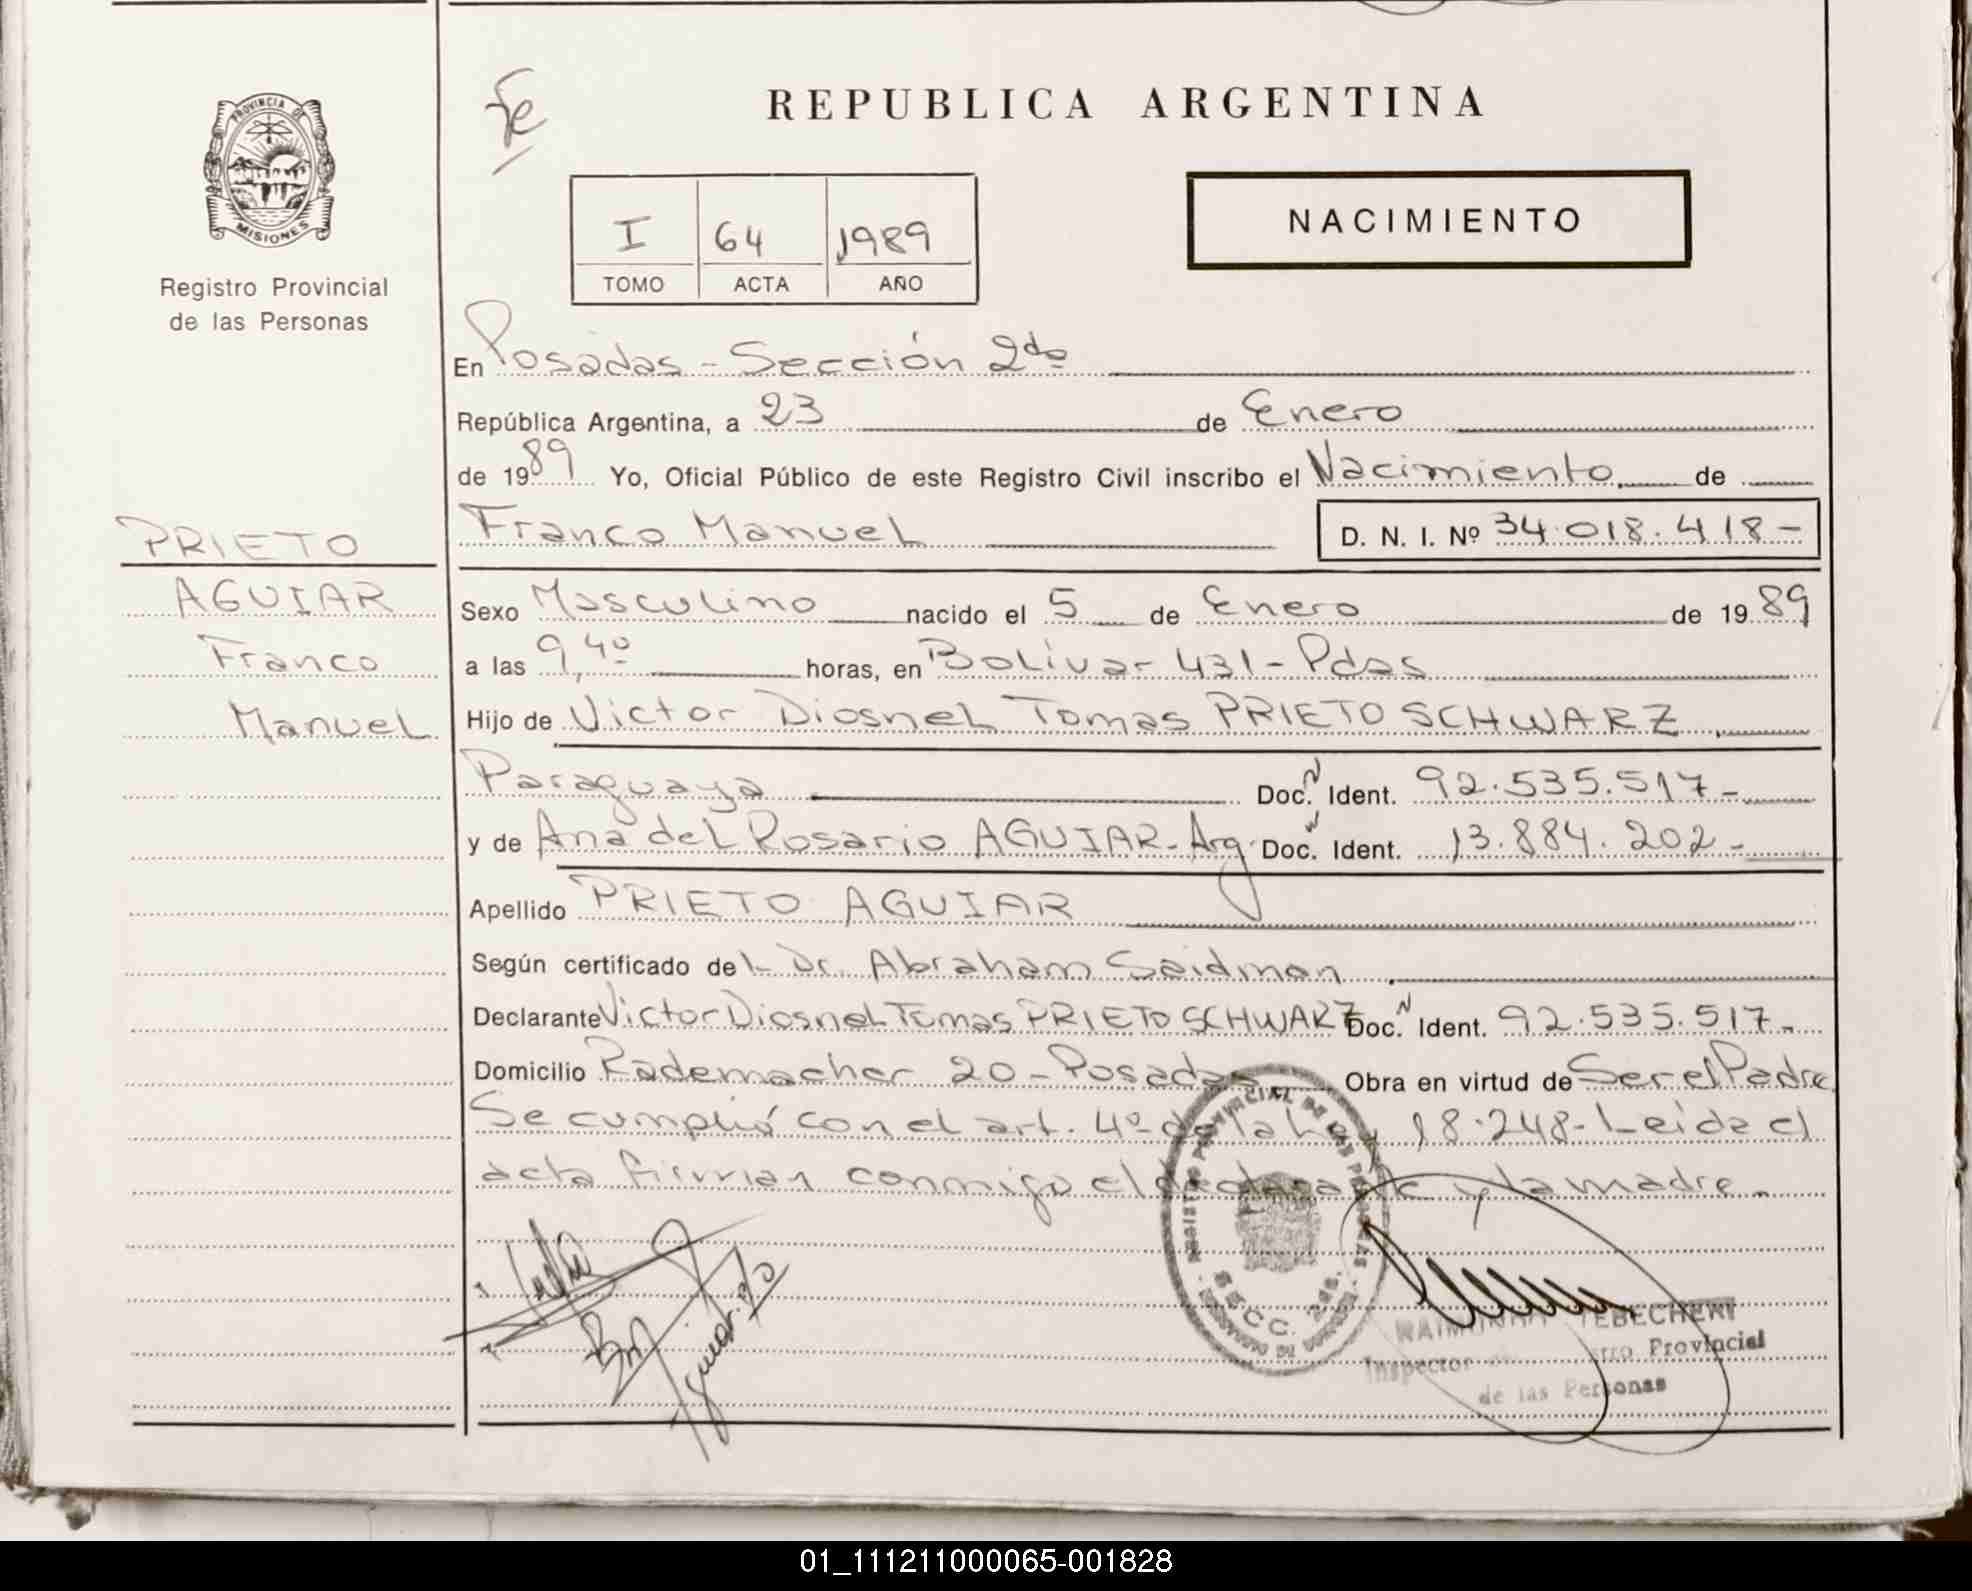 PROVINCIA DE
MISIONES
Registro Provincial
de las Personas
Fe
REPUBLICA ARGENTINA
NACIMIENTO
I 64 1989
TOMO ACTA AÑO
En Posadas - Sección 2da
República Argentina, a 23 de Enero
de 1989 Yo, Oficial Público de este Registro Civil inscribo el Nacimiento de
Franco Manuel D. N. I. Nº 34.018.418-
PRIETO
AGUIAR
Franco
Manuel
Sexo Masculino nacido el 5 de Enero de 1989
a las 9,40 horas, en Bolívar 431 - Pdas
Hijo de Victor Diosnel Tomas PRIETO SCHWARZ
Paraguaya Doc. N Ident. 92.535.517-
y de Ana del Rosario AGUIAR - Arg. Doc. N Ident. 13.884.202-
Apellido PRIETO AGUIAR
Según certificado del Dr. Abraham Saidman
Declarante Victor Diosnel Tomas PRIETO SCHWARZ Doc. N Ident. 92.535.517-
Domicilio Rademacher 20 - Posadas Obra en virtud de Ser el Padre
Se cumplió con el art. 4º de la Ley 18.248 - Leída el
acta firman conmigo el declarante y la madre.
REGISTRO PROVINCIAL DE LAS PERSONAS
SECC. 2da.
TEBECHERI
Inspector Provincial
de las Personas
01_111211000065-001828